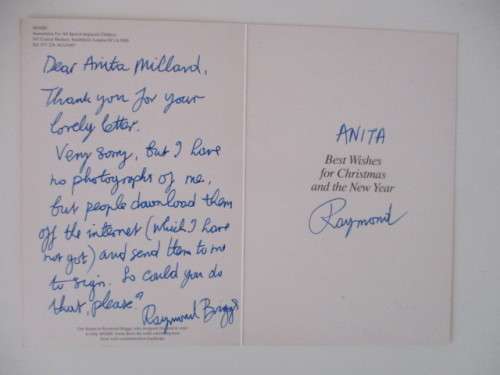 Dear Anita Millard,
Thank you for your
lovely letter.
Very sorry, but I have
no photographs of me,
but people download them
off the internet (which I have
not got) and send them to me
to sign. So could you do
that, please?
Raymond Briggs
ANITA
Best Wishes
for Christmas
and the New Year
Raymond